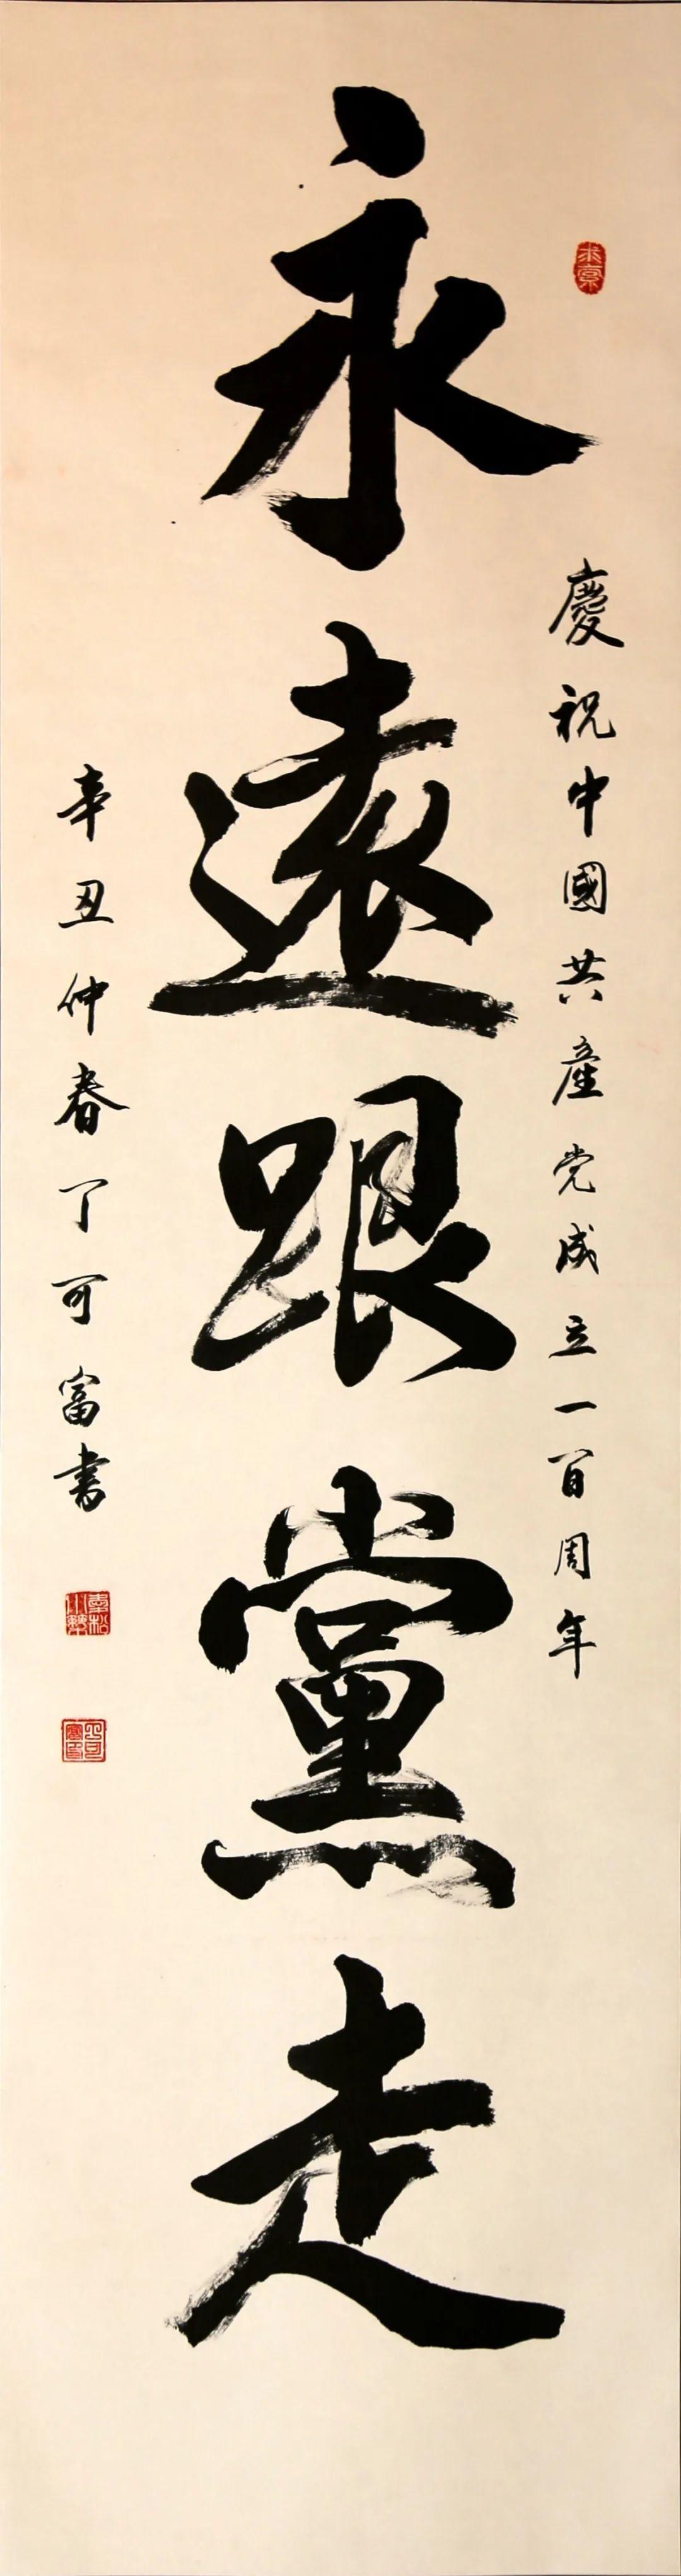 慶祝中國共產党成立一百周年
永遠跟黨走
辛丑仲春丁可富書